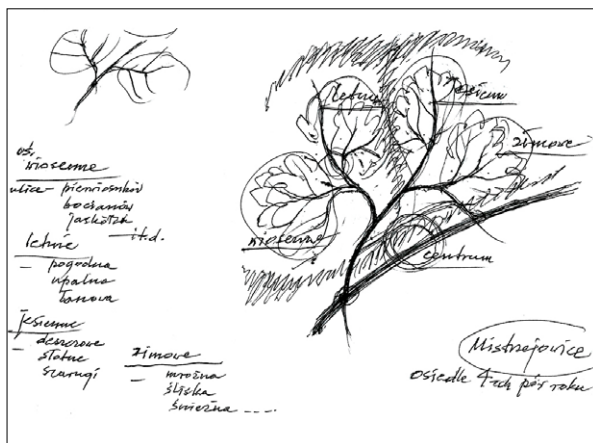 oś.
wiosenne
ulica - pierwiosnków
bocianów
jaskółek
itd.
letnie
- pogodna
upalna
łanowa
jesienne
- deszczowe
słotne
szarugi
zimowe
- mroźna
śliska
śnieżna ----
letnie
jesienne
zimowe
wiosenne
centrum
Mistrzejowice
osiedle 4-ech pór roku